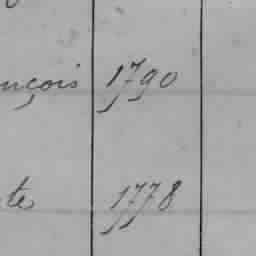 nçois 1790
te 1778